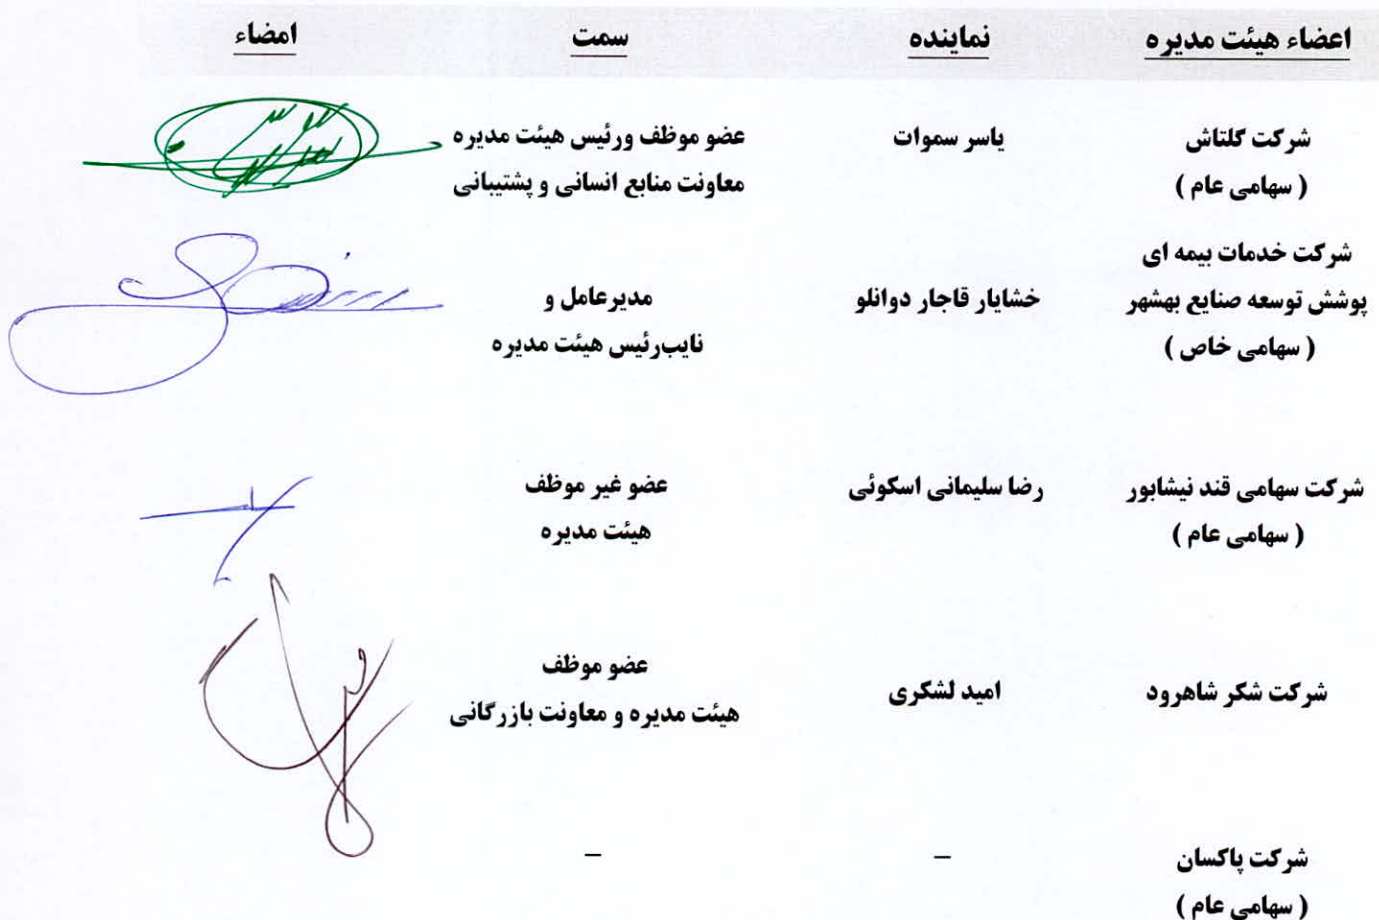 اعضاء هیئت مدیره نماینده سمت امضاء
شرکت گلتاش یاسر سموات عضو موظف ورئیس هیئت مدیره
( سهامی عام ) معاونت منابع انسانی و پشتیبانی
شرکت خدمات بیمه ای
پوشش توسعه صنایع بهشهر خشایار قاجار دوانلو مدیرعامل و
( سهامی خاص ) نایب‌رئیس هیئت مدیره
شرکت سهامی قند نیشابور رضا سلیمانی اسکوئی عضو غیر موظف
( سهامی عام ) هیئت مدیره
عضو موظف
شرکت شکر شاهرود امید لشکری هیئت مدیره و معاونت بازرگانی
شرکت پاکسان – –
( سهامی عام )